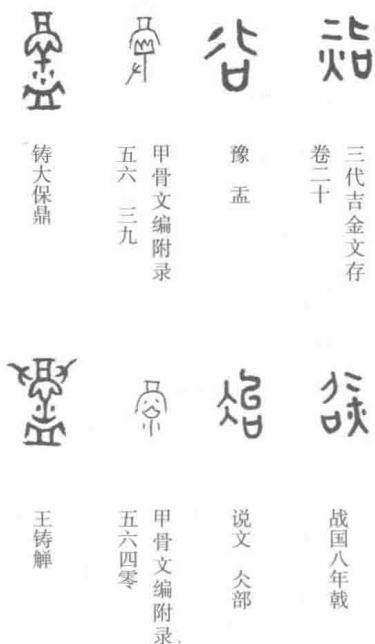 三代吉金文存
卷二十
豫 盂
甲骨文编附录
五六 三九
铸大保鼎
战国八年戟
说文 仌部
甲骨文编附录
五六四零
王铸觯